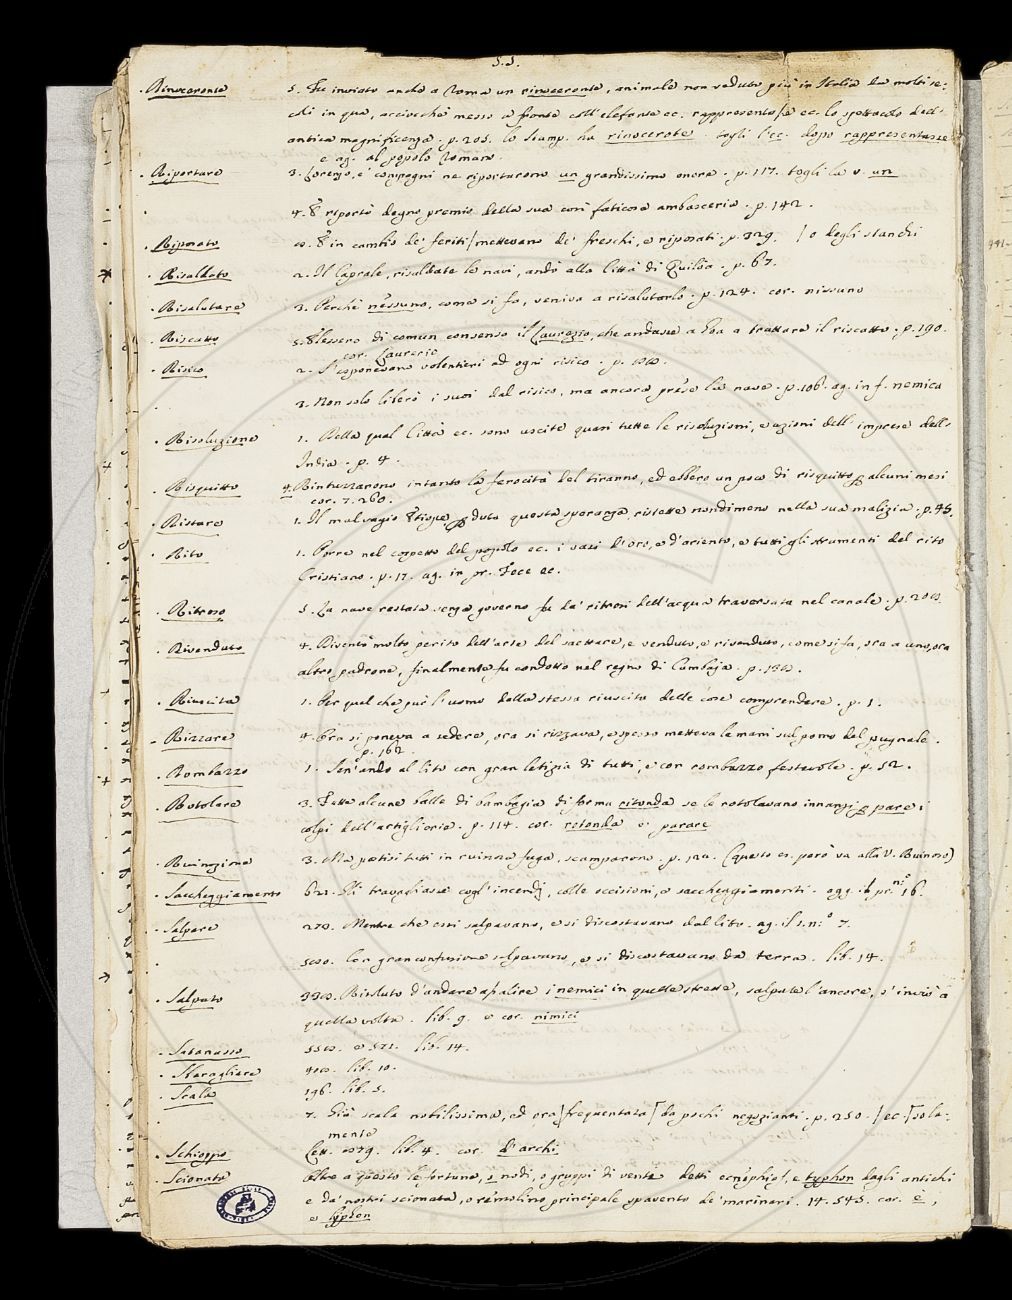 S.S.
Rinoceronte 5. Fu inviato anche a Roma un rinoceronte, animale non veduto più in Italia da molti se-
coli in qua, acciocchè messo a fronte coll'elefante ec. rappresentasse ec. lo spettacolo dell'
antica magnificenza. p. 205. lo Stamp. ha rinocerote. togli l'ec. dopo rappresentasse
e ag. al popolo Romano.
Riportare 3. Lorenzo, e' compagni ne riportarono un grandissimo onore. p. 117. togli la v. un
4. E riportò degno premio della sua così faticosa ambasceria. p. 142.
Riposato E in cambio de' feriti / mettevano de' freschi, e riposati. p. 329. / o degli stanchi
Risaldato 2. Il Caprale, risaldate le navi, andò alla Città di Quiloa. p. 67.
Risalutare 3. Perchè nessuno, come si fa, veniva a risalutarlo. p. 124. cor. nissuno
Riscatto 5. Elessero di comun consenso il Laurezio, che andasse a Goa a trattare il riscatto. p. 190.
cor. Laurerio
Risico 2. S'esponevano volentieri ad ogni risico. p.
3. Non solo liberò i suoi dal risico, ma ancora prese la nave. p. 106. ag. in f. nemica
Risoluzione 1. Della qual Città ec. sono uscite quasi tutte le risoluzioni, e azioni dell'imprese dell'
India. p. 4.
Risquitto 4. Rintuzzarono intanto la ferocità del tiranno, ed ebbero un poco di risquitto p alcuni mesi
cor. 7. 260.
Ristare 1. Il malvagio Etiope, pduta questa speranza, ristette nondimeno nella sua malizia. p. 45.
Rito 1. Porre nel cospetto del popolo ec. i vasi d'oro, e d'ariento, e tutti gli strumenti del rito
Cristiano. p. 17. ag. in pr. Fece ec.
Ritroso 5. La nave restata senza governo fu da' ritrosi dell'acqua traversata nel canale. p.
Rivenduto 4. Diventò molto perito dell'arte del saettare, e venduto, e rivenduto, come si fa, ora a uno, ora
altro padrone, finalmente fu condotto nel regno di Cambaja. p.
Riuscita 1. Per quel che può l'uomo dalla stessa riuscita delle cose comprendere. p. 1.
Rizzare 4. Ora si poneva a sedere, ora si rizzava, e spesso metteva le mani sul pomo del pugnale.
p. 162.
Rombazzo 1. Sen'andò al lito con gran letizia di tutti, e con rombazzo festevole. p. 52.
Rotolare 3. Fatte alcune balle di bambagia di forma ritonda se le rotolavano innanzi p pare i
colpi dell'artiglieria. p. 114. cor. rotonda e parare
Ruinoziono 3. Ma postisi tutti in ruinosa fuga, scamparono. p. 120. (questo es. però va alla V. Ruinoso)
Saccheggiamento 621. Gli travagliasse cogl'incendj, colle occisioni, e saccheggiamenti. agg. lb pr. n.º 16.
Salpare 270. Mentre che essi salpavano, e si discostavano dal lito. ag. il l. n.º 7.
500. Con gran confusione salparono, e si discostavano da terra. lib. 14.
Salpato 330. Risoluto d'andare assalire i nemici in quelle strette, salpate l'ancore, s'inviò a
quella volta. lib. 9. e cor. nimici
Satanasso 550. e 571. lib. 14.
Sbaragliare 400. lib. 10.
Scala 196. lib. 5.
7. Già scala nobilissima, ed ora / frequentata / da pochi negozianti. p. 250. / ec. / sola-
mente
Schioppo Lett. lib. 4. cor. d'archi
Scionato Oltre a questo le fortune, e nodi, o gruppi di vento detti ecnéphiӕ, e typhon dagli antichi
e da' nostri scionata, o remolino principale spavento de' marinari. 14. 545. cor. e,
e typhon